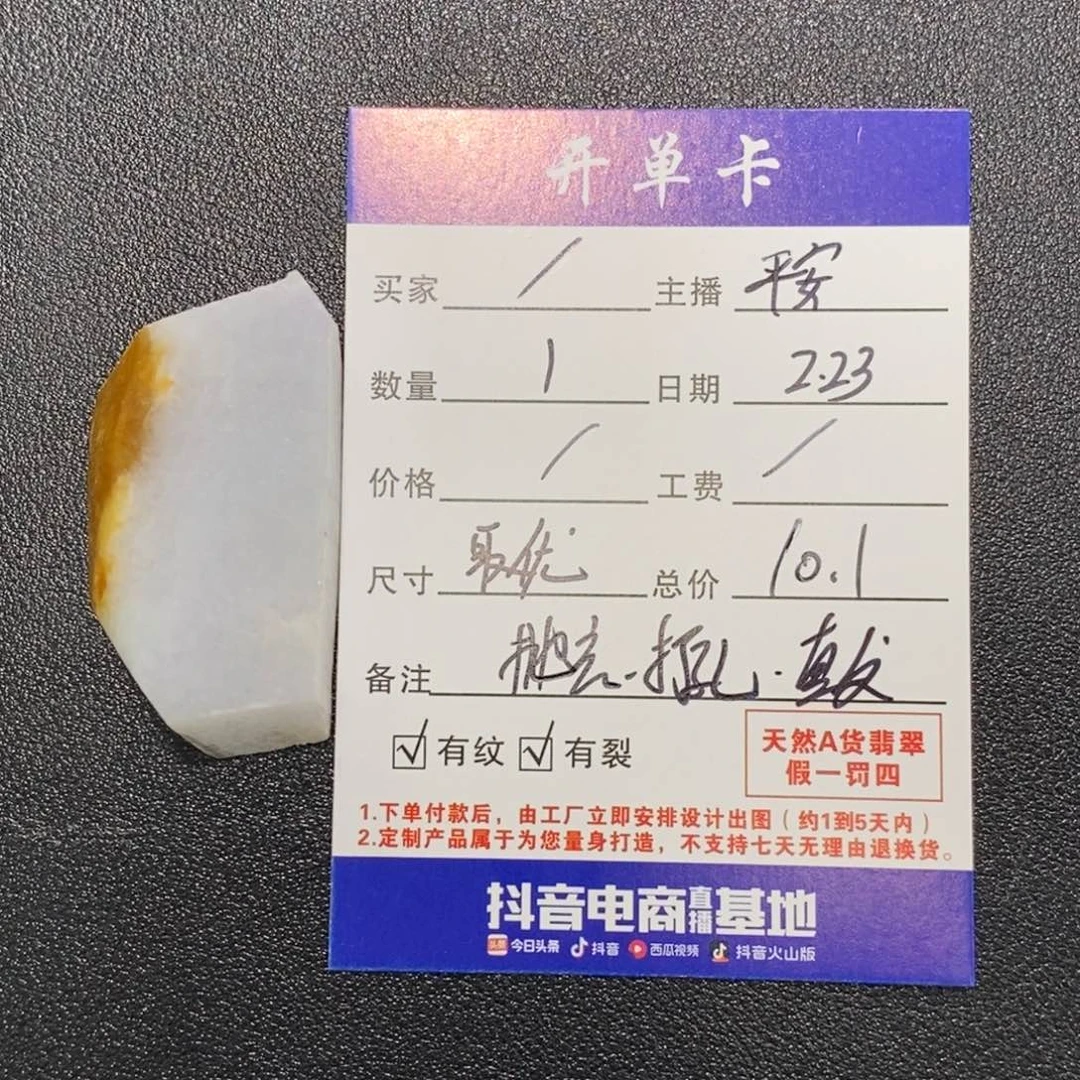 开单卡
买家 / 主播 平安
数量 1 日期 2.23
价格 / 工费 /
尺寸 取优 总价 10.1
备注 抛亮·打孔·直发
☑有纹 ☑有裂
天然A货翡翠
假一罚四
1.下单付款后，由工厂立即安排设计出图（约1到5天内）
2.定制产品属于为您量身打造，不支持七天无理由退换货。
抖音电商直播基地
头条 今日头条 抖音 西瓜视频 抖音火山版